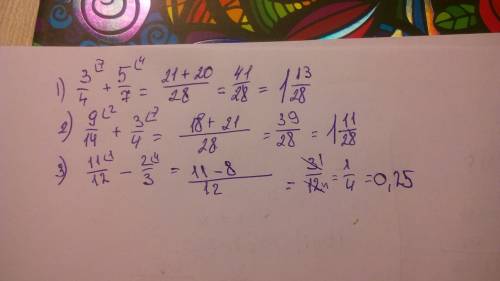 1) 3/4⁷ + 5/7⁴ = (21+20)/28 = 41/28 = 1 13/28
2) 9/14² + 3/4⁷ = (18+21)/28 = 39/28 = 1 11/28
3) 11/12¹ - 2/3⁴ = (11-8)/12 = 3¹/12⁴ = 1/4 = 0,25